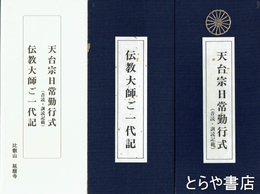 天台宗日常勤行式
（音訳・講談記載）
伝教大師ご一代記
比叡山 延暦寺
伝教大師ご一代記
天台宗日常勤行式
とらや書店